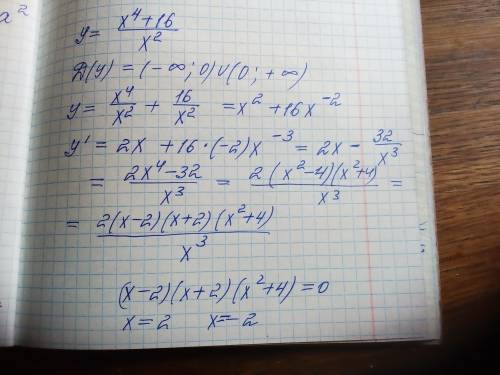 a²
y = (x⁴+16)/x²
D(y) = (-∞; 0) ∪ (0; +∞)
y = x⁴/x² + 16/x² = x² + 16x⁻²
y' = 2x + 16·(-2)x⁻³ = 2x - 32/x³
= (2x⁴-32)/x³ = 2(x²-4)(x²+4)/x³ =
= 2(x-2)(x+2)(x²+4)/x³
(x-2)(x+2)(x²+4)=0
x=2 x=-2